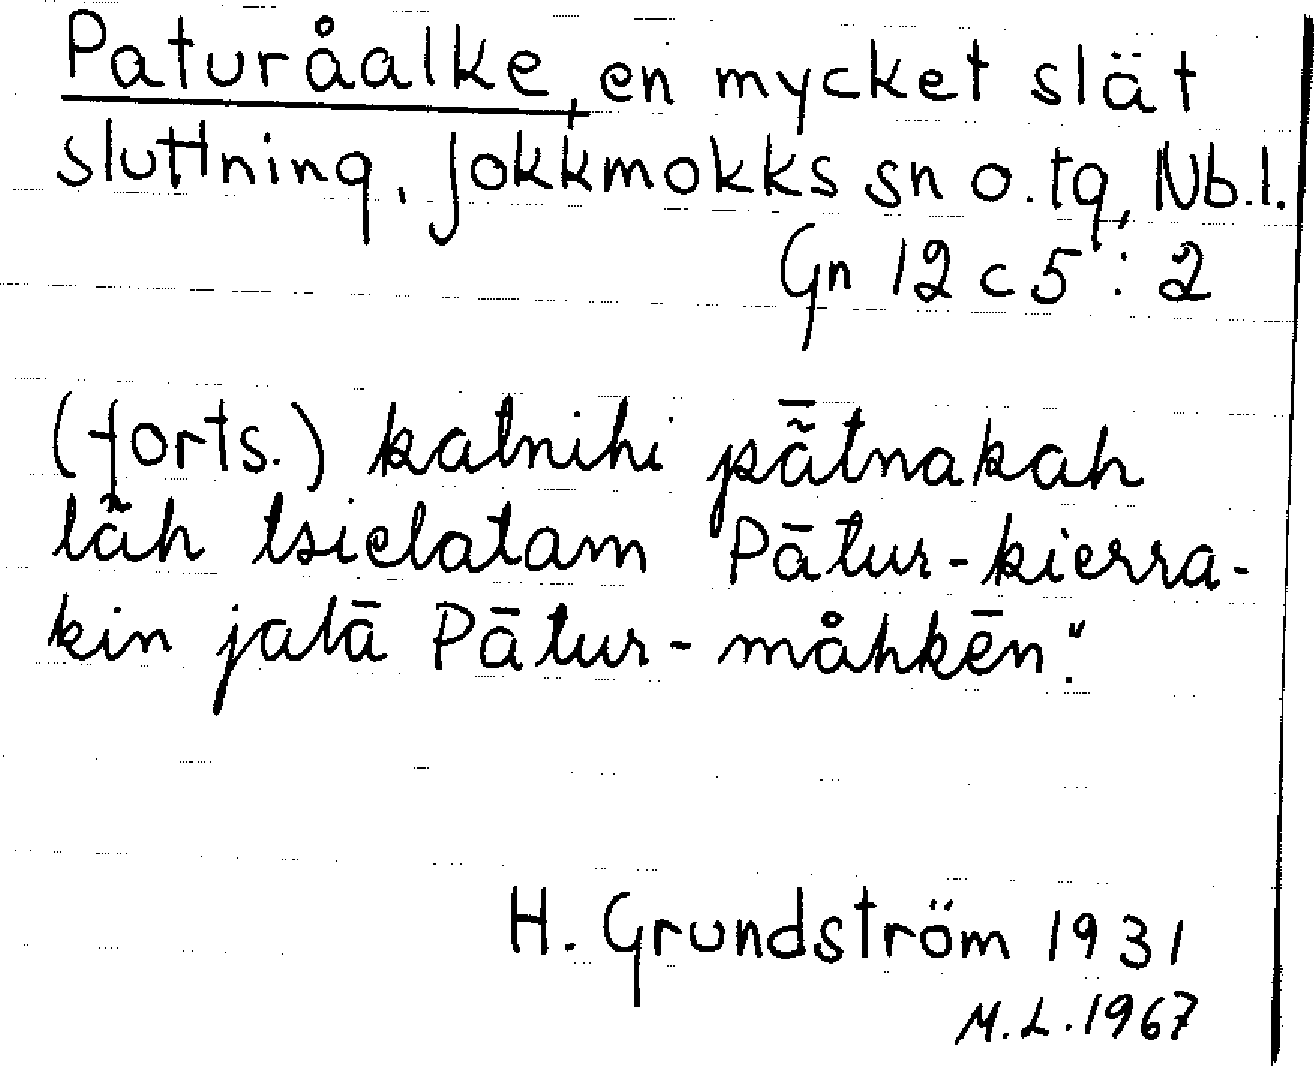 Paturåalke, en mycket slät
sluttning, Jokkmokks sn o. tg, Nb.l.
Gn 12 c 5 : 2
(forts.) katnihi pā̃tnakah
lãh tsielatam Pātur-kierra-
kin jatā Pātur-måhkēn."
H. Grundström 1931
M.L. 1967